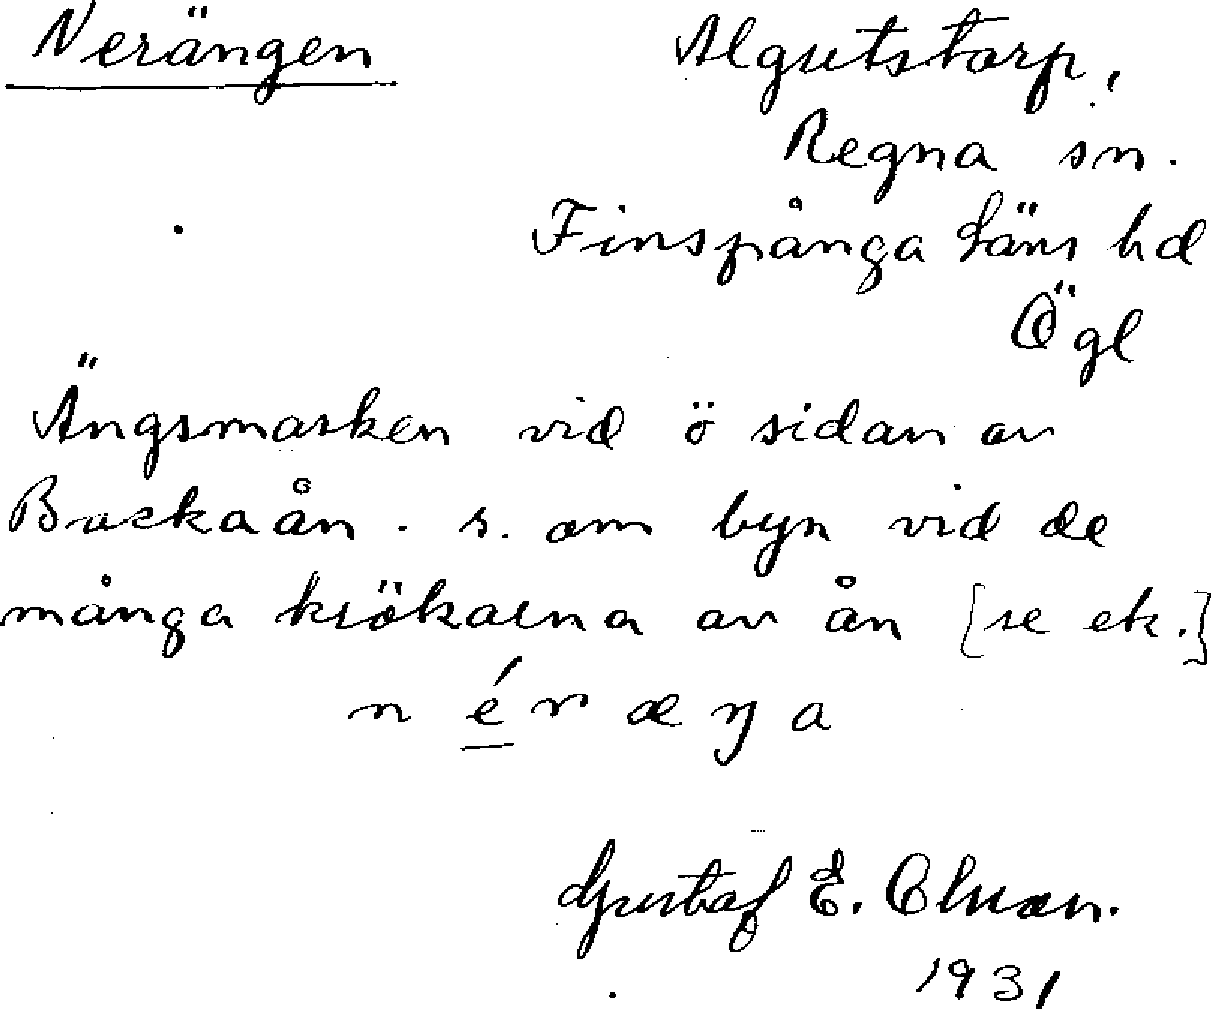 Nerängen
Algutstorp,
Regna sn.
Finspånga läns hd
Ögl
Ängsmarken vid ö sidan av
Backaån. s. om byn vid de
många krökarna av ån [se ek.]
n é r æ ŋ a
Gustaf E.
1931